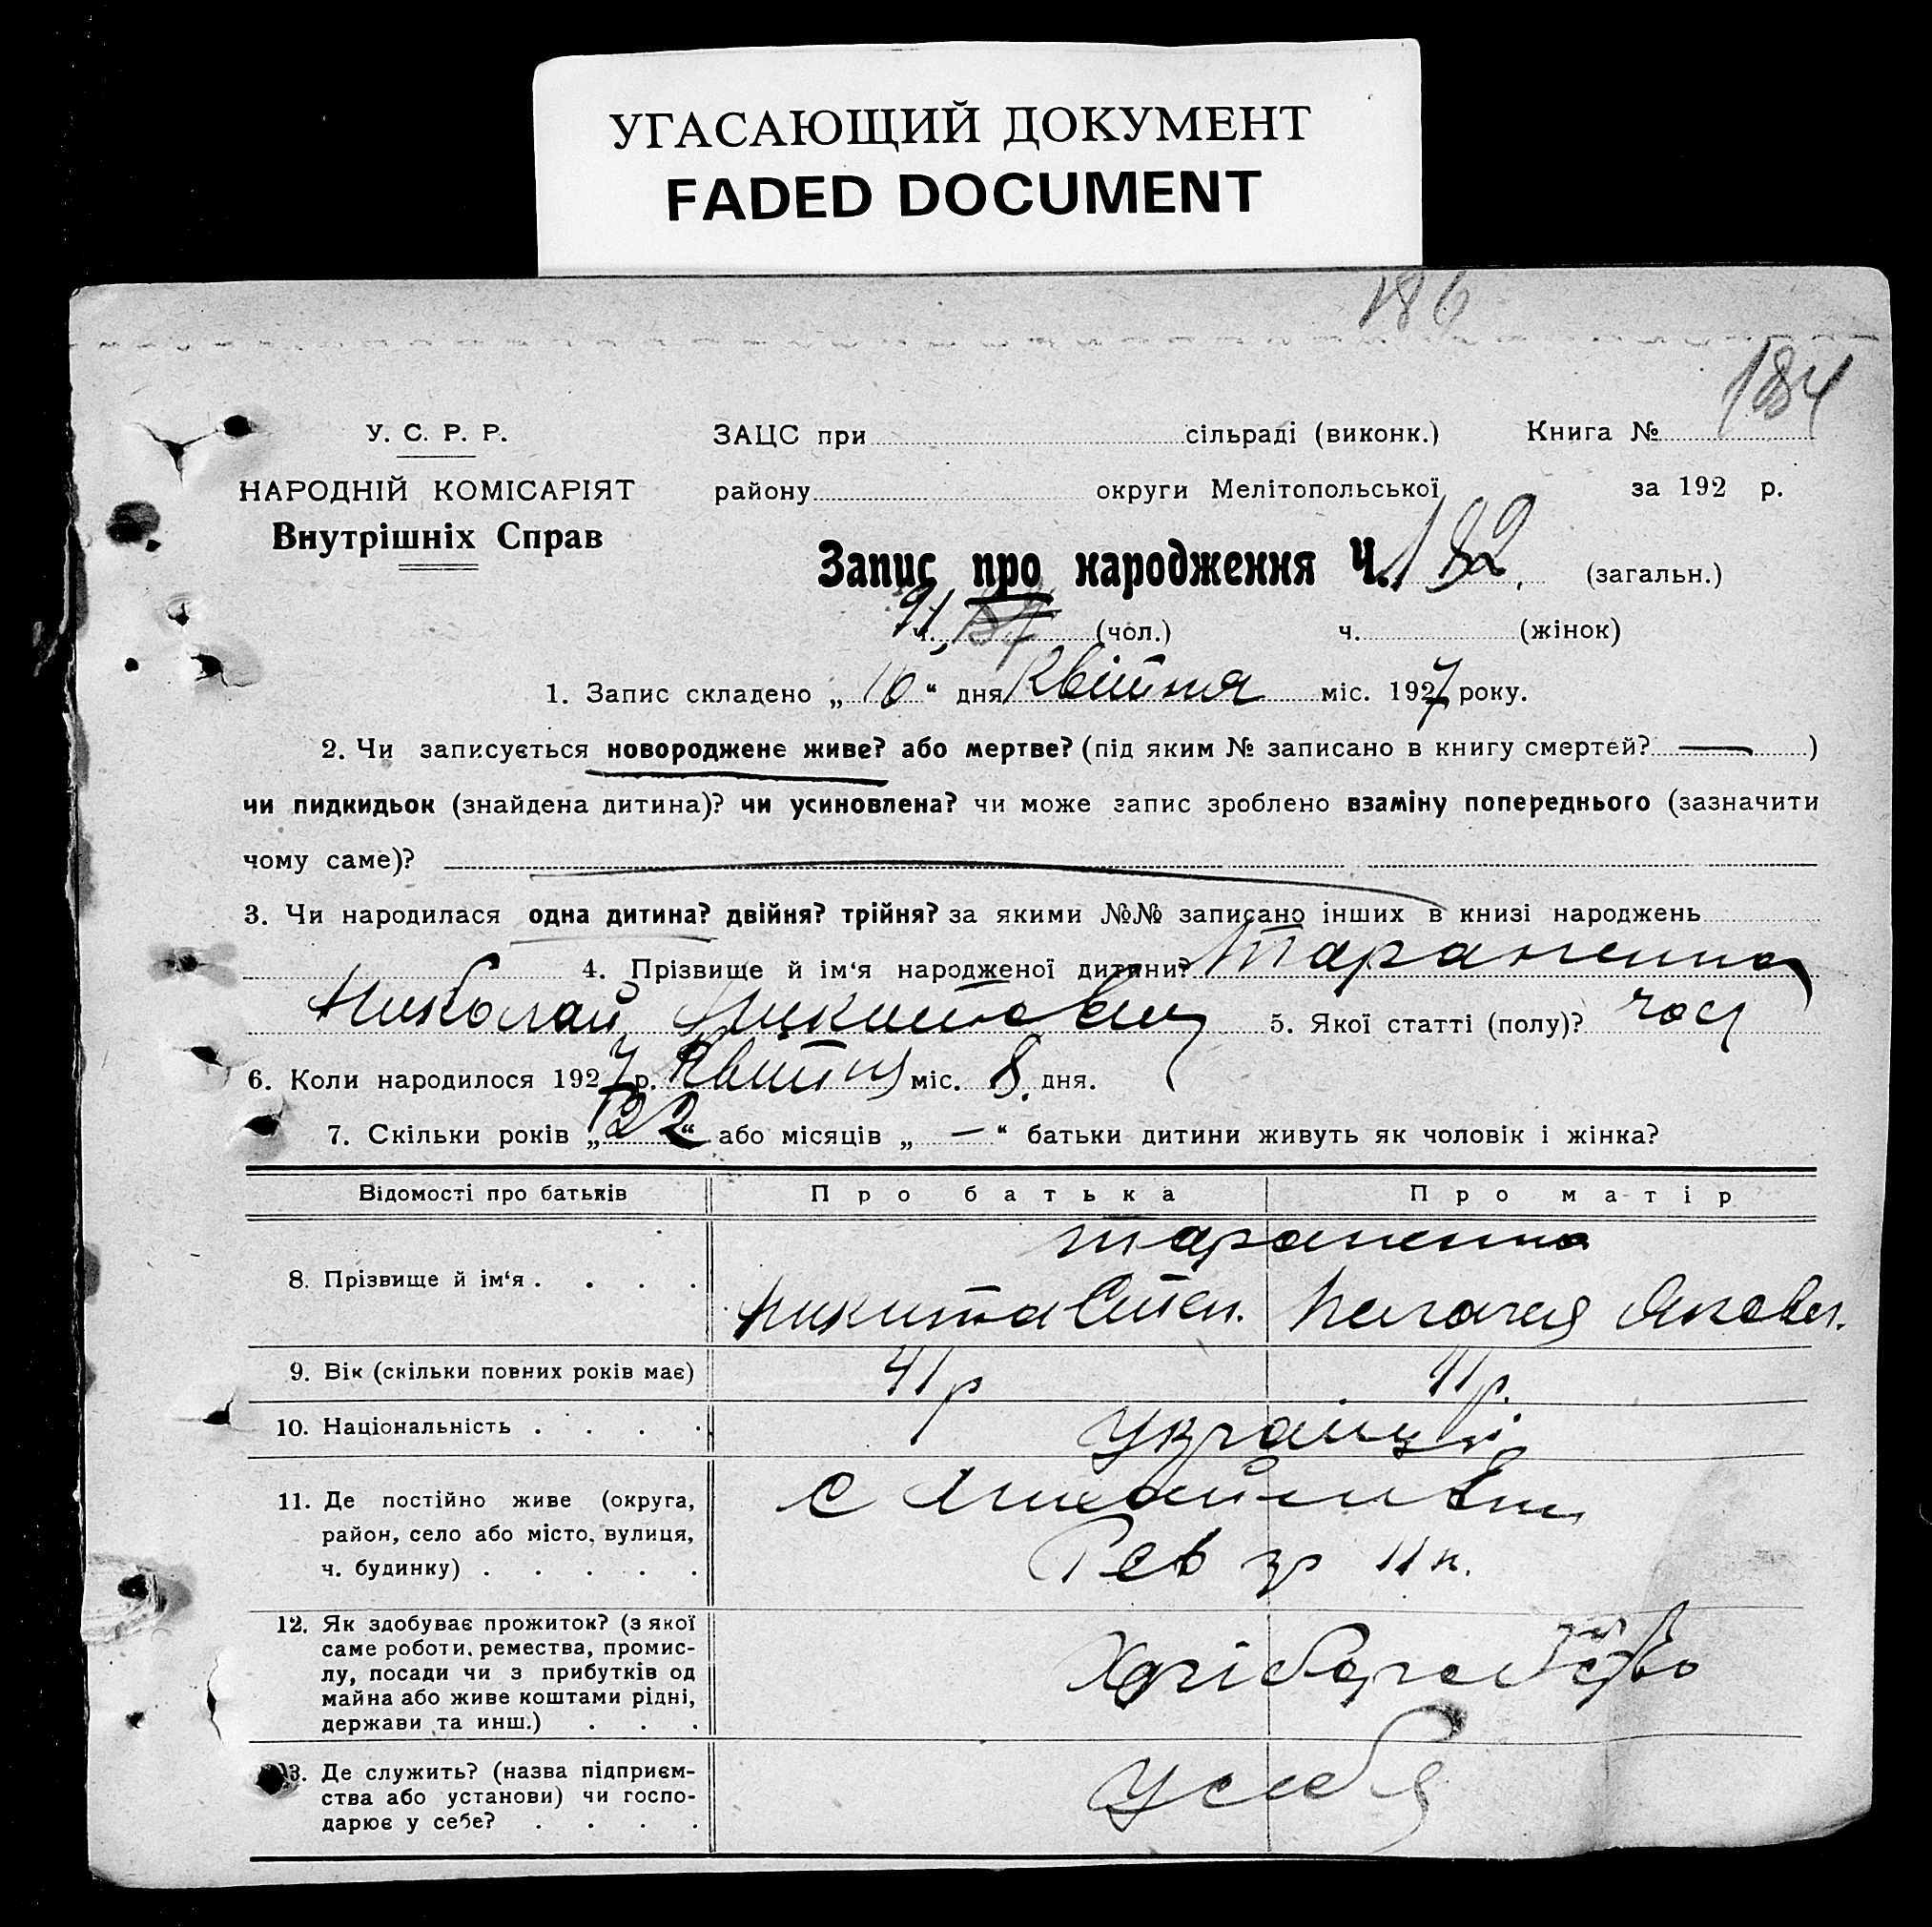 УГАСАЮЩИЙ ДОКУМЕНТ
FADED DOCUMENT
186
184
У. С. Р. Р.
ЗАЦС при сільраді (виконк.) Книга №
НАРОДНІЙ КОМІСАРІЯТ
району округи Мелітопольської за 192 р.
Внутрішніх Справ
Запис про народження Ч. 182. (загальн.)
ч. 91 (чол.) ч. (жінок)
1. Запис складено „ 10 “ дня Квітня міс. 1927 року.
2. Чи записується новороджене живе? або мертве? (під яким № записано в книгу смертей? — )
чи пидкидьок (знайдена дитина)? чи усиновлена? чи може запис зроблено взаміну попереднього (зазначити
чому саме)?
3. Чи народилася одна дитина? двійня? трійня? за якими №№ записано інших в книзі народжень
4. Прізвище й ім‘я народженої дитини? Тараненко
Николай Никитович 5. Якої статті (полу)? чол
6. Коли народилося 1927 р. Квітня міс. 8 дня.
7. Скільки років „ 22 “ або місяців „ — “ батьки дитини живуть як чоловік і жінка?
Відомості про батьків Про батька Про матір
Тараненко
8. Прізвище й ім‘я . . . . Никита Степ. Пелагея Яковл.
9. Вік (скільки повних років має) 41 р 41 р.
10. Національність . . . . Українці
11. Де постійно живе (округа, с Михайлівка
район, село або місто, вулиця, Рев
ч. будинку) . . . . .
12. Як здобуває прожиток? (з якої
саме роботи, ремества, промис-
лу, посади чи з прибутків од Хліборобство
майна або живе коштами рідні,
держави та инш.) . . .
13. Де служить? (назва підприєм-
ства або установи) чи госпо- У себе
дарює у себе? . . . .